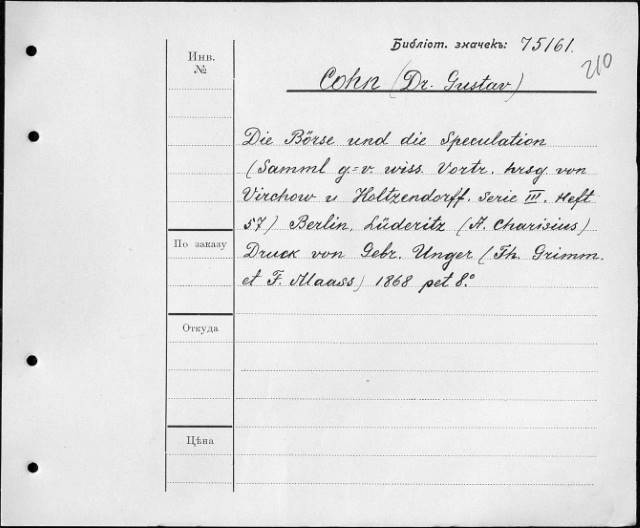 Библіот. значекъ: 75161.
210
Инв.
№
Cohn (Dr. Gustav)
Die Börse und die Speculation
(Samml g.=v. wiss. Vortr. hrsg von
Virchow u Holtzendorff. Serie III. Heft
57) Berlin, Lüderitz (A. Charisius)
По заказу
Druck von Gebr. Unger (Th. Grimm.
et F. Maass) 1868 pet 8.º
Откуда
Цѣна